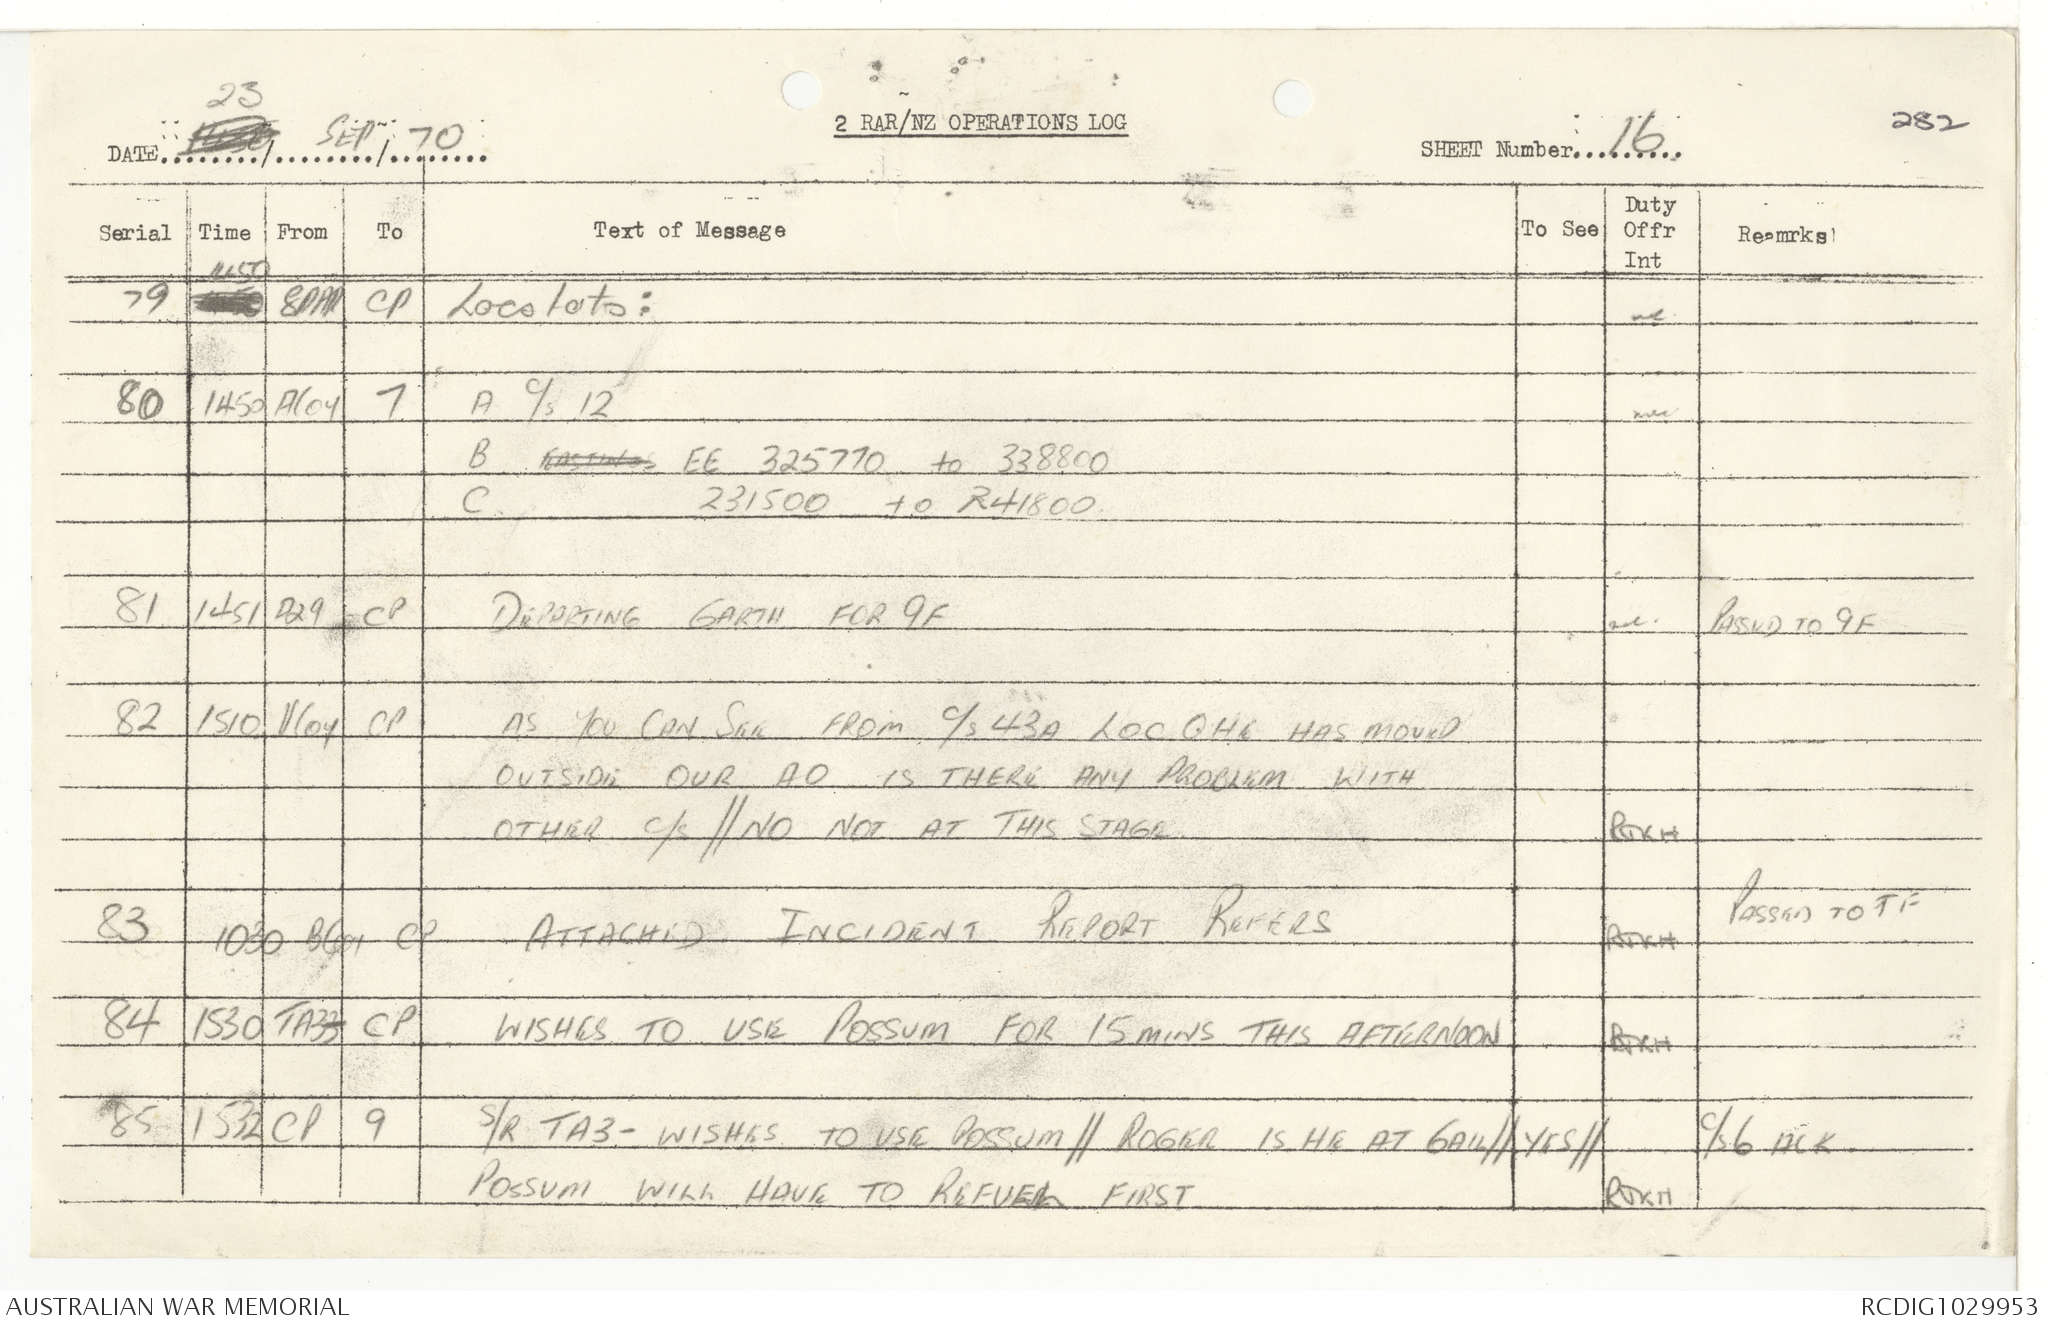 23
DATE........./ SEP / 70
2 RAR/NZ OPERATIONS LOG
SHEET Number 16
282
Serial Time From To Text of Message To See Duty Offr Int Reamrks
79 1450 CP Locstats:
80 1450 ACoy 7 A C/s 12
B EASTINGS EE 325770 to 338800
C 231500 to 241800
81 1451 CP DEPARTING GARTH FOR 9F PASSED TO 9F
82 1510 VCoy CP AS YOU CAN SEE FROM C/S 43A LOC HE HAS MOVED
OUTSIDE OUR AO IS THERE ANY PROBLEM WITH
OTHER C/S // NO NOT AT THIS STAGE RJKH
83 1030 BCoy CP ATTACHED INCIDENT REPORT REFERS RJKH PASSED TO TF
84 1530 CP WISHES TO USE POSSUM FOR 15 MINS THIS AFTERNOON RJKH
85 1532 CP 9 S/R TA3- WISHES TO USE POSSUM // ROGER IS HE AT GAIL // YES // C/S 6 ACK
POSSUM WILL HAVE TO REFUEL FIRST RJKH
AUSTRALIAN WAR MEMORIAL
RCDIG1029953